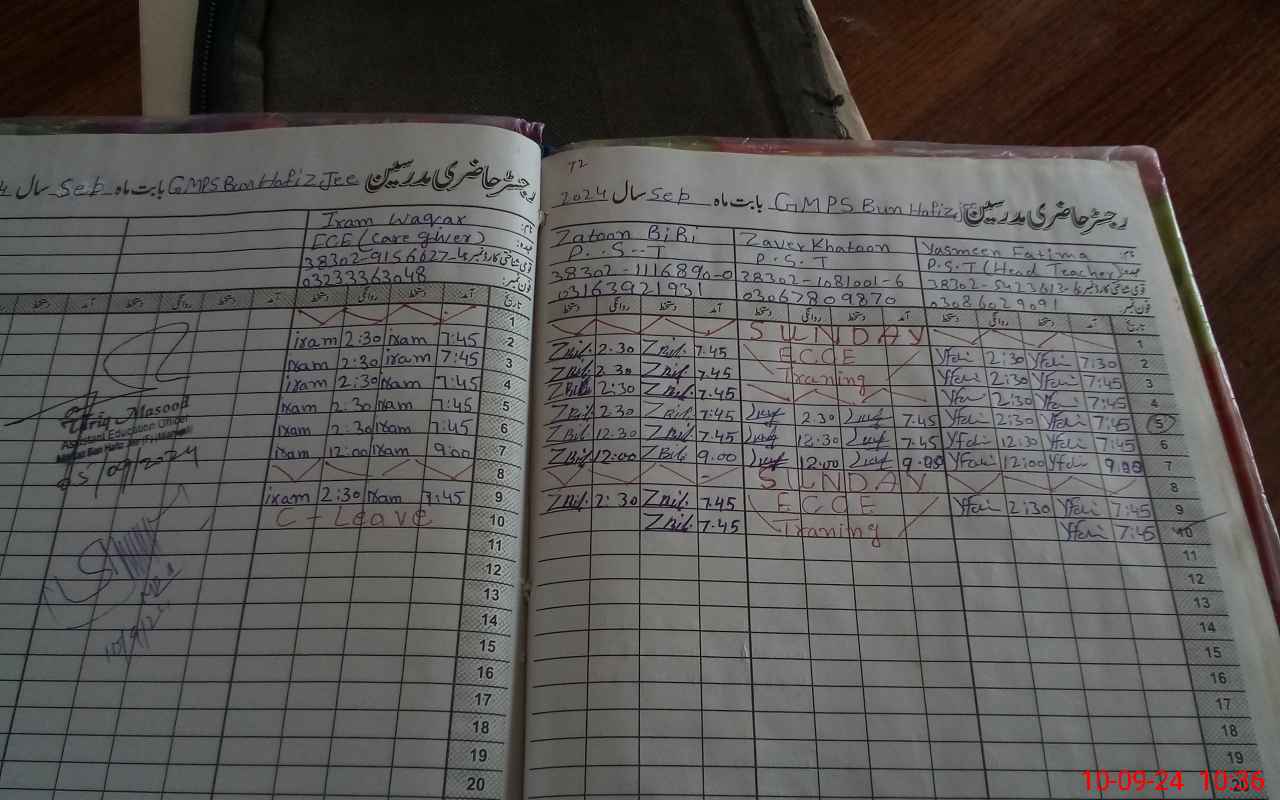 سال Sep بابت ماہ GMPS Bun Hafiz Jee رجسٹر حاضری مدرسین
نام: Iram Waqar
عہدہ: ECE (Care giver)
قومی شناختی کارڈ نمبر 38302-9156627-4
فون نمبر: 03233363048
تاریخ آمد دستخط روانگی دستخط آمد دستخط روانگی دستخط آمد
1
iram 2:30 iram 7:45 2
iram 2:30 iram 7:45 3
iram 2:30 iram 7:45 4
iram 2:30 iram 7:45 5
iram 2:30 iram 7:45 6
iram 12:00 iram 9:00 7
8
iram 2:30 iram 7:45 9
C - Leave 10
11
12
13
14
15
16
17
18
19
20
Tariq Masood
Assistant Education Officer
05/09/2024
72
2024 سال Sep بابت ماہ GMPS Bun Hafiz Jee رجسٹر حاضری مدرسین
Zatoon BiBi Zaver Khatoon Yasmeen Fatima نام:
P.S.T P.S.T P.S.T (Head Teacher)
38302-1116890-0 38302-1081001-6 38302-5423613-6
03163921931 03067809870 03086029091 فون نمبر:
دستخط روانگی دستخط آمد دستخط روانگی دستخط آمد دستخط روانگی دستخط آمد تاریخ
SUNDAY 1
ZBibi 2.30 ZBibi 7.45 ECCE 2:30 7:30 2
ZBibi 2.30 ZBibi 7.45 Traning 2:30 7:45 3
ZBibi 2:30 ZBibi 7.45 2:30 7:45 4
ZBibi 2.30 ZBibi 7.45 2.30 7.45 2:30 7:45 5
ZBibi 12.30 ZBibi 7.45 12:30 7.45 12:30 7:45 6
ZBibi 12:00 ZBibi 9.00 12:00 9.00 12:00 9:00 7
SUNDAY 8
ZBibi 2:30 ZBibi 7.45 ECCE 2:30 7:45 9
ZBibi 7.45 Traning 7:45 10
11
12
13
14
15
16
17
18
19
20
10-09-24 10:36